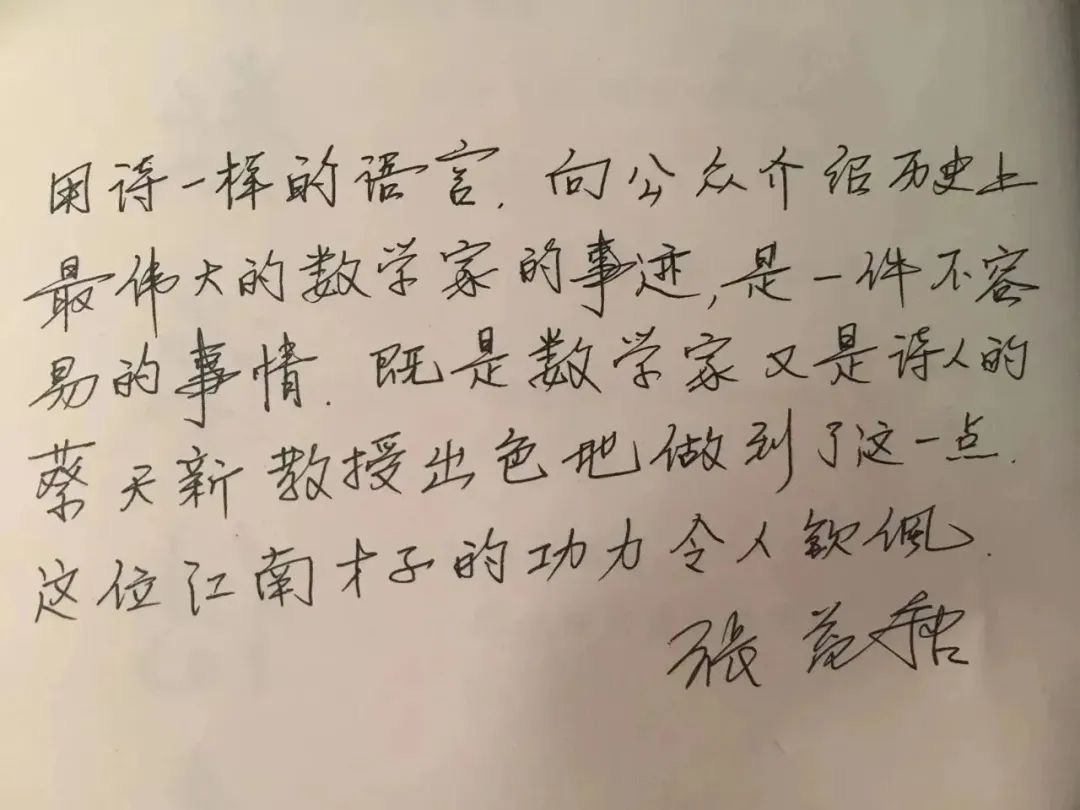 用诗一样的语言. 向公众介绍历史上
最伟大的数学家的事迹, 是一件不容
易的事情. 既是数学家又是诗人的
蔡天新教授出色地做到了这一点.
这位江南才子的功力令人钦佩.
張益唐